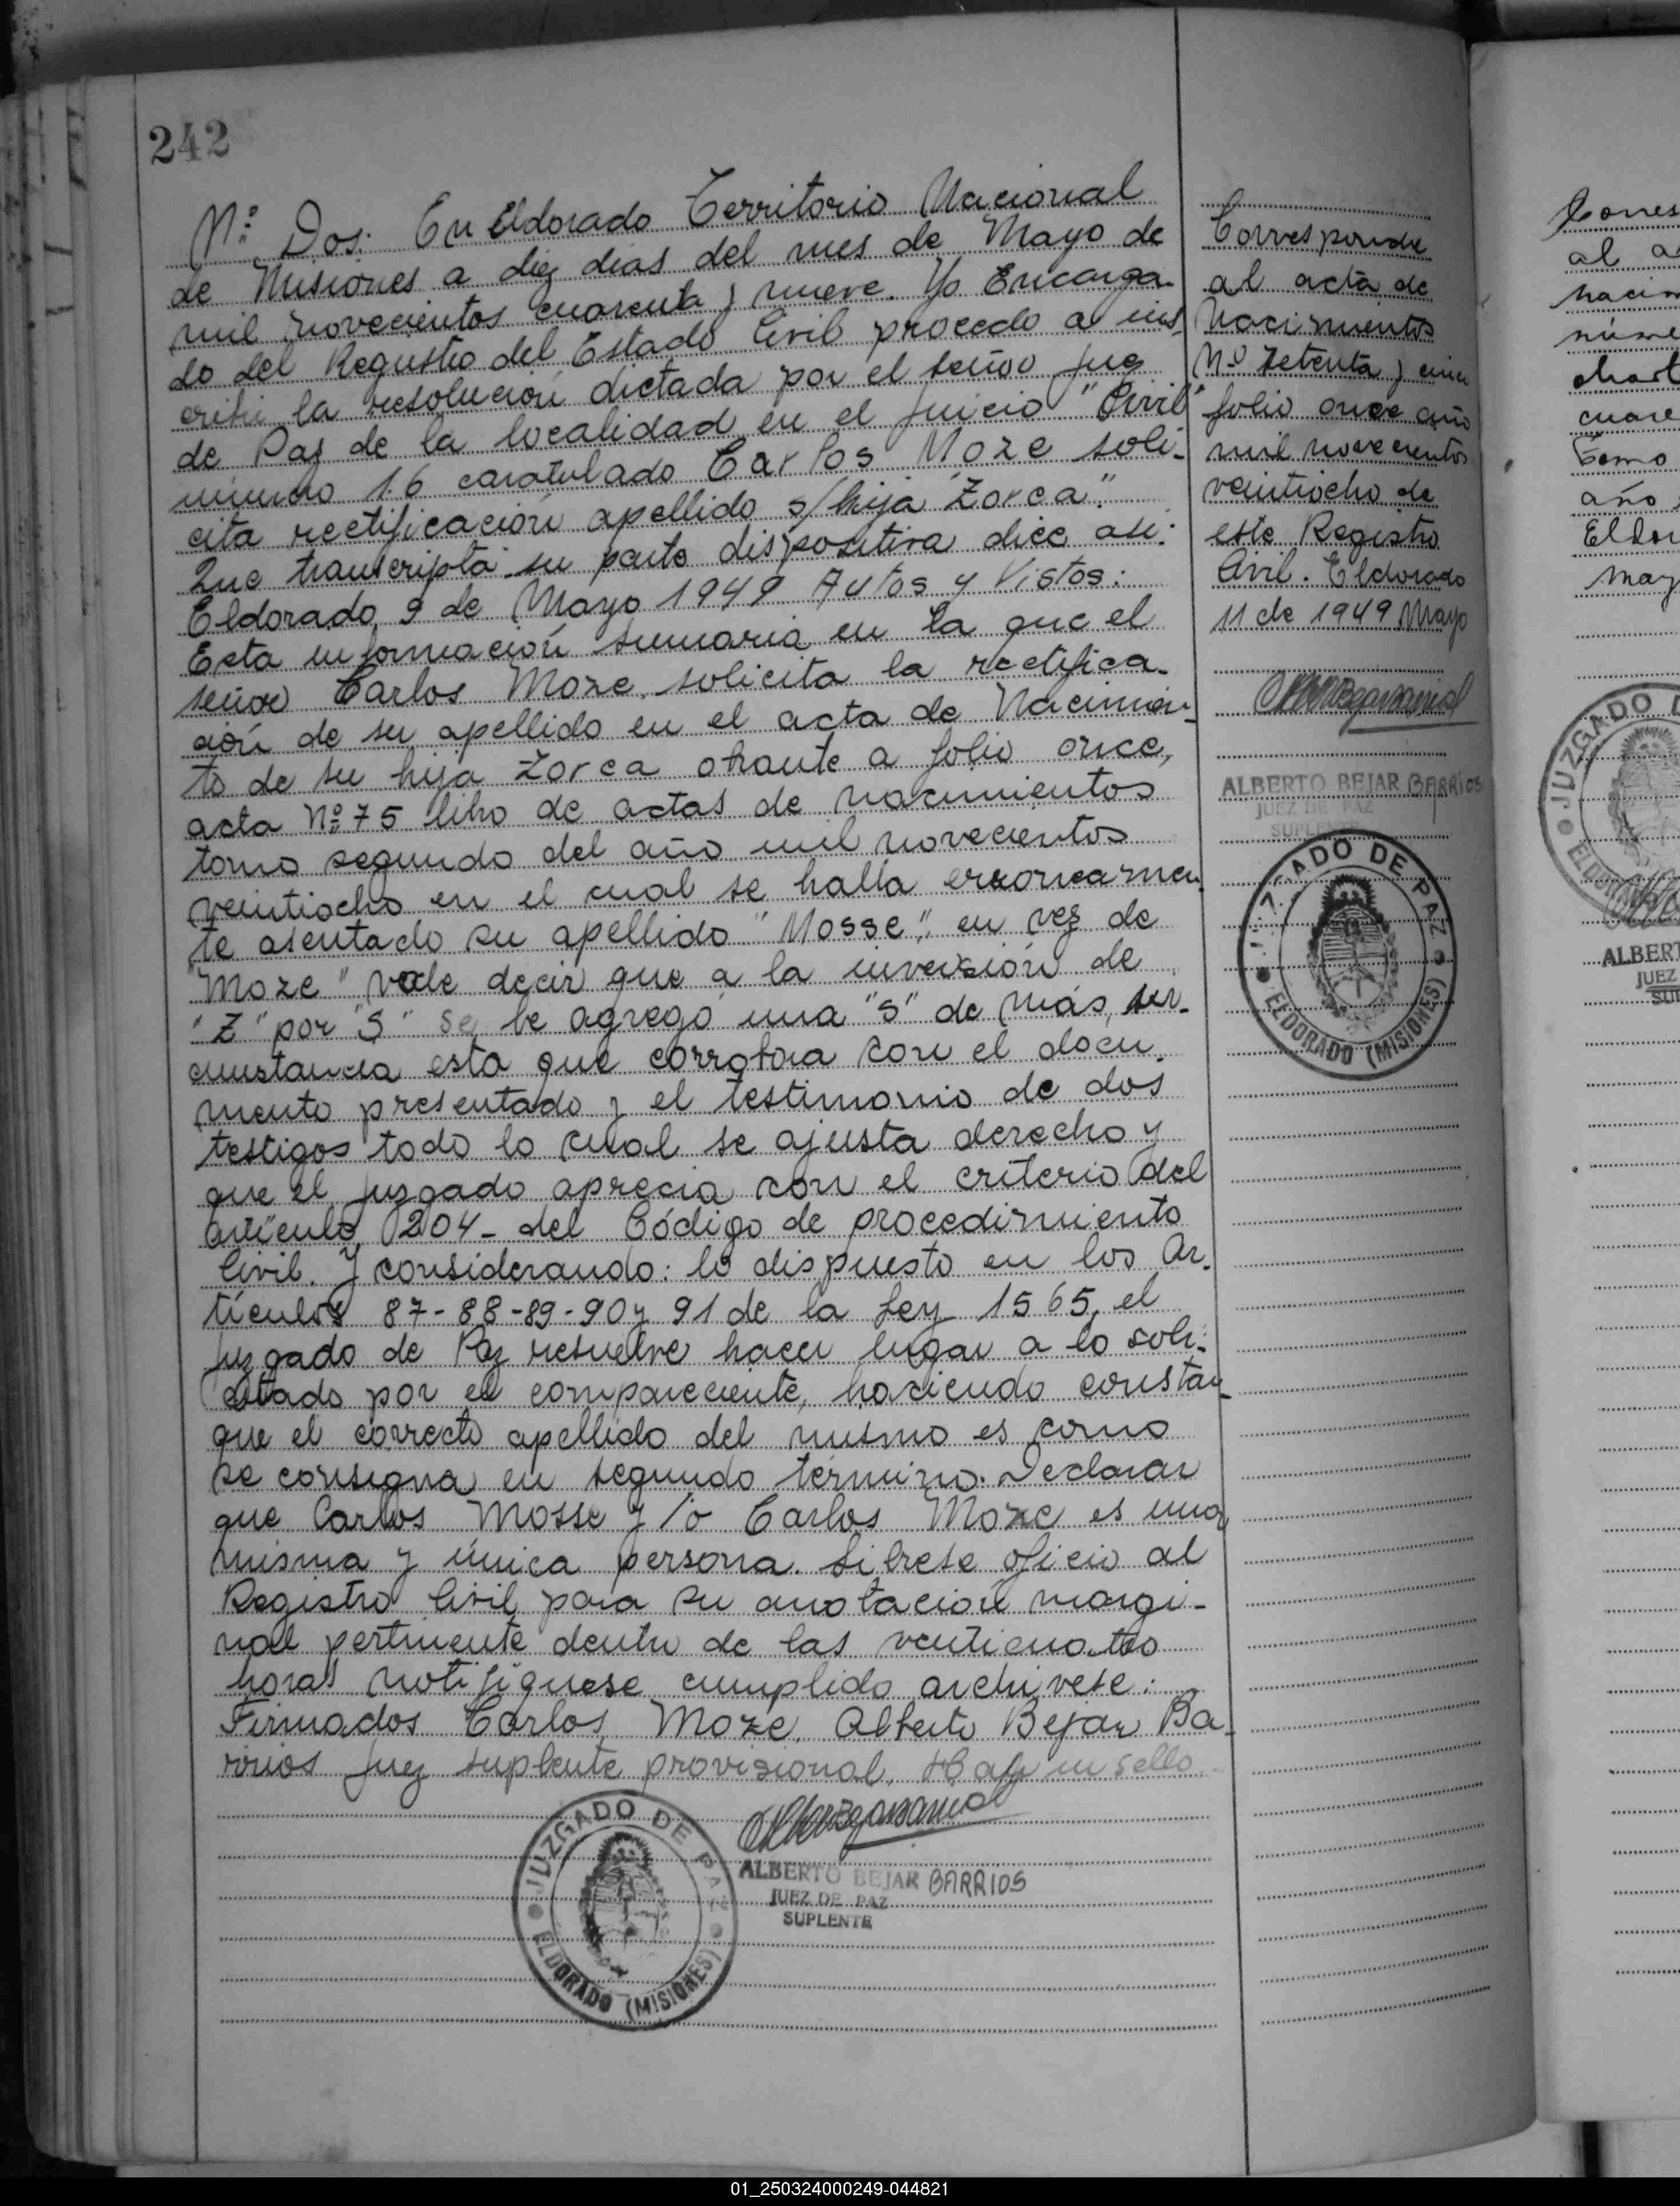 242
Nº: Dos: En Eldorado Territorio Nacional
de Misiones a diez dias del mes de Mayo de
mil novecientos cuarenta y nueve. Yo Encarga-
do del Registro del Estado Civil procedo a ins-
cribir la resolución dictada por el señor juez
de Paz de la localidad en el juicio "Civil"
número 16 caratulado Carlos Moze soli-
cita rectificación apellido s/hija Zorca".
Que transcripta su parte dispositiva dice asi:
Eldorado, 9 de Mayo 1949 Autos y Vistos:
Esta información sumaria en la que el
señor Carlos Moze, solicita la rectifica-
ción de su apellido en el acta de Nacimien-
to de su hija Zorca obrante a folio once,
acta Nº: 75 libro de actas de nacimientos
tomo segundo del año mil novecientos
veintiocho en el cual se halla erroneamen-
te asentado su apellido "Mosse", en vez de
"Moze" vale decir que a la inversión de
"Z" por "S" se le agregó una "s" de más, sir-
cunstancia esta que corrobora con el docu-
mento presentado y el testimonio de dos
testigos todo lo cual se ajusta derecho y
que el juzgado aprecia con el criterio del
artículo 204- del Código de procedimiento
Civil. Y considerando: lo dispuesto en los Ar-
tículos 87-88-89-90 y 91 de la Ley 1565, el
juzgado de Paz resuelve hacer lugar a lo soli-
citado por el compareciente, haciendo constar
que el correcto apellido del mismo es como
se consigna en segundo término. Declarar
que Carlos Mosse y/o Carlos Moze es una
misma y única persona. Librese oficio al
Registro Civil para su anotación margi-
nal pertinente dentro de las venticuatro
horas notifiquese cumplido archivese:
Firmados Carlos Moze, Alberto Bejar Ba-
rrios juez suplente provisional. Hay un sello.
ALBERTO BEJAR BARRIOS
JUEZ DE PAZ
SUPLENTE
JUZGADO DE PAZ
ELDORADO (MISIONES)
Corresponde
al acta de
Nacimientos
Nº setenta y cinco
folio once año
mil novecientos
veintiocho de
este Registro
Civil. Eldorado
11 de 1949 Mayo
ALBERTO BEJAR BARRIOS
JUEZ DE PAZ
SUPLENTE
JUZGADO DE PAZ
ELDORADO (MISIONES)
al a
Tomo
año
Eldor
may
JUZGADO D
ELDORADO
ALBERT
JUEZ
SUP
01_250324000249-044821